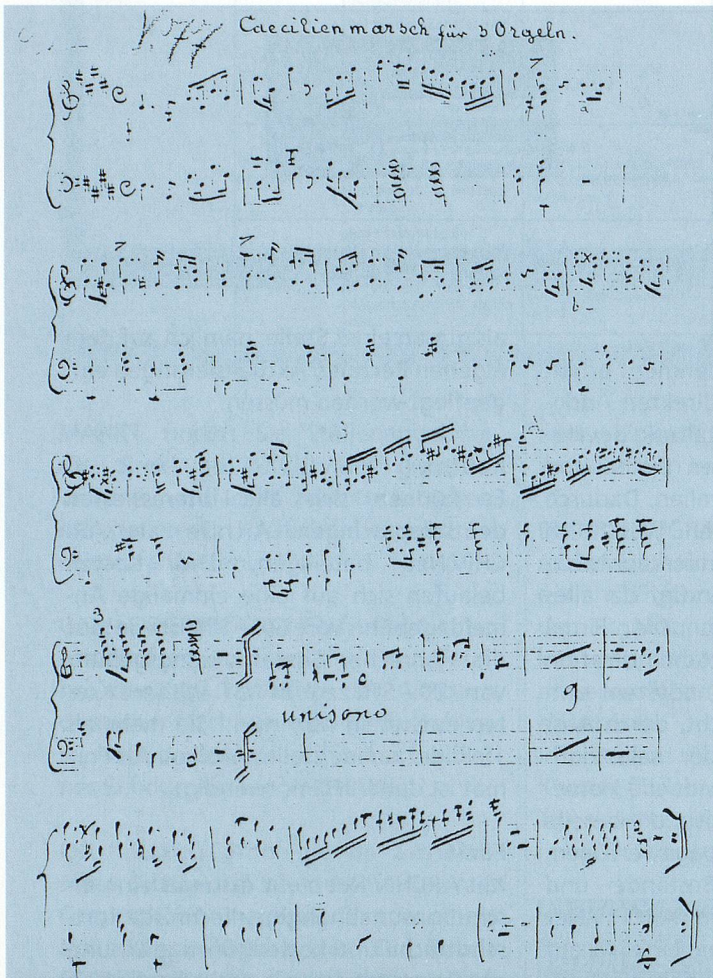 Caecilienmarsch für 3 Orgeln.
3
unisono